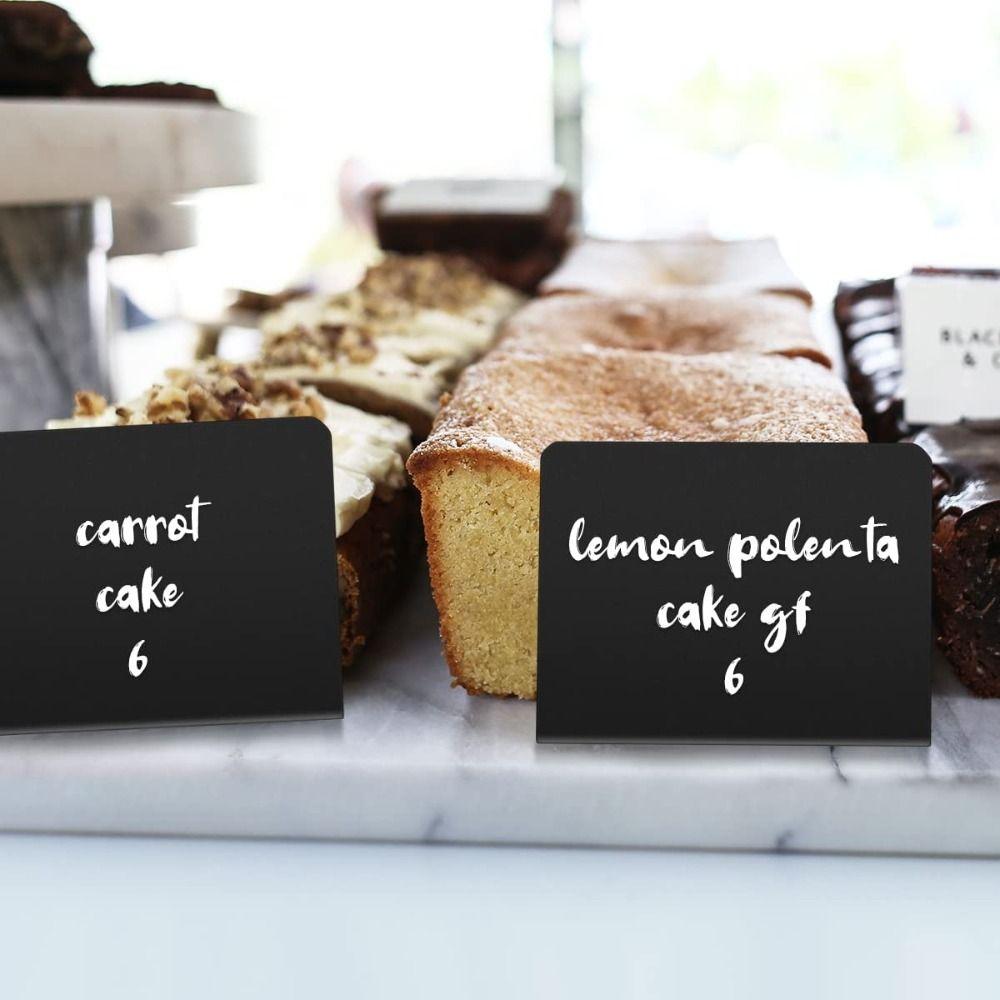 carrot
cake
6
lemon polenta
cake gf
6
&